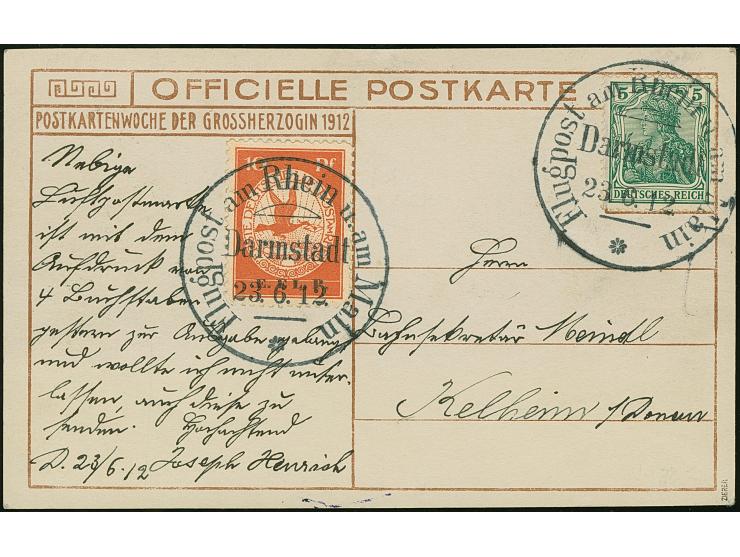 OFFICIELLE POSTKARTE
POSTKARTENWOCHE DER GROSSHERZOGIN 1912
Nebige
Luftpostmarke
ist mit dem
Aufdruck von
4 Buchstaben
gestern zur Ausgabe gelangt
und wollte ich nicht unter-
lassen, auch diese zu
senden. Hochachtend
D. 23/6.12 Joseph Henrich
10 Pf
E.EL.P.
Flugpost am Rhein u. am Main
Darmstadt
23.6.12
*
5 5
DEUTSCHES REICH
Flugpost am Rhein u. am Main
Darmstadt
23.6.12
*
Herrn
Bahnsekretär Meindl
Kelheim a/Donau
ZIERER